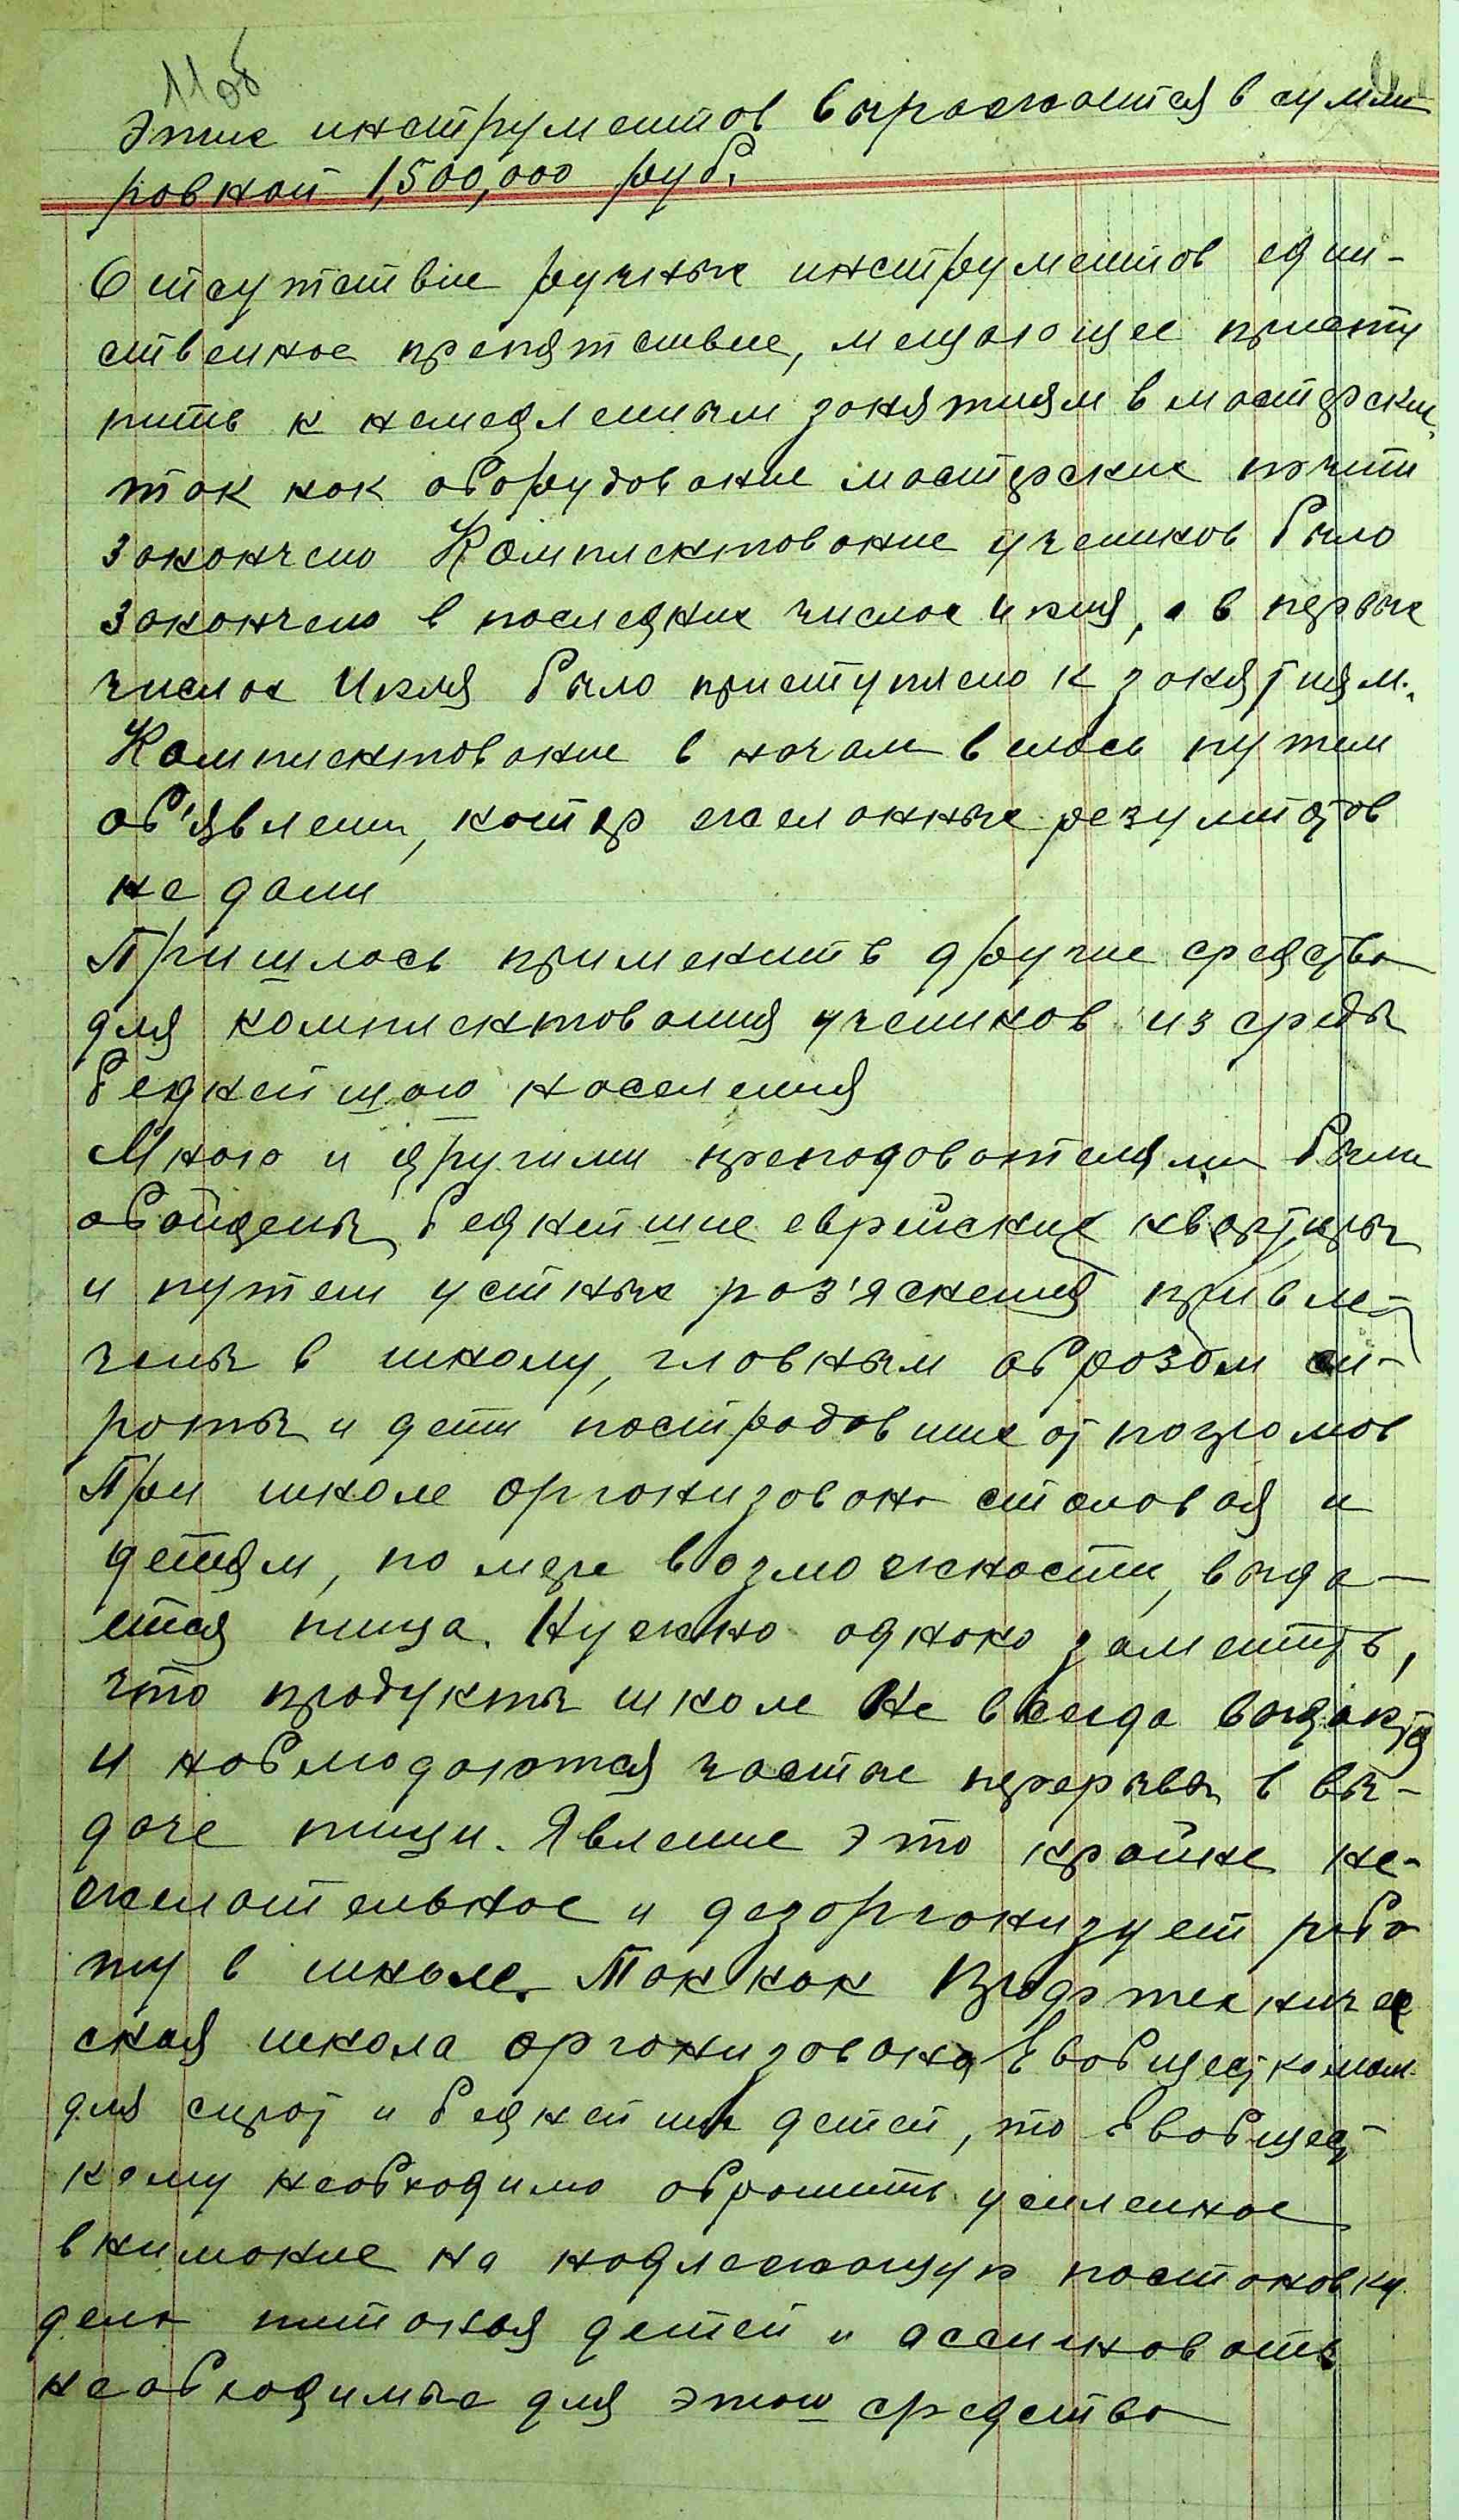 11об
этих инструментов выражается в сумме
ровной 1,500,000 руб.
Отсутствие ручных инструментов един-
ственное препятствие, мешающее присту
пить к немедленным занятиям в мастерских,
так как оборудование мастерских почти
закончено Комплектование учеников было
закончено в последних числах июня, а в первых
числах Июля было приступлено к занятиям.
Комплектование в начале велось путем
об'явлений, котор желанных результатов
не дали
Пришлось применить другие средства
для комплектования учеников из среды
беднейшого населения
Мною и другими преподователями были
обойдены беднейшие еврейские квартиры
и путем устных раз'яснений привле-
чены в школу, главным образом си-
роты и дети пострадавших от погромов
При школе организована столовая и
детям, по мере возможности, выда-
ется пища. Нужно однако заметить,
что продукты школе не всегда выдаются
и наблюдаются частые перерывы в вы-
даче пищи. Явление это крайне не-
желательное и дезорганизует рабо
ту в школе. Так как Профтехниче
ская школа организована Евобщесткомом
для сирот и беднейших детей, то Евобщест
кому необходимо обратить усиленное
внимание на надлежащую постановку
дела питания детей и ассигновать
необходимые для этого средства